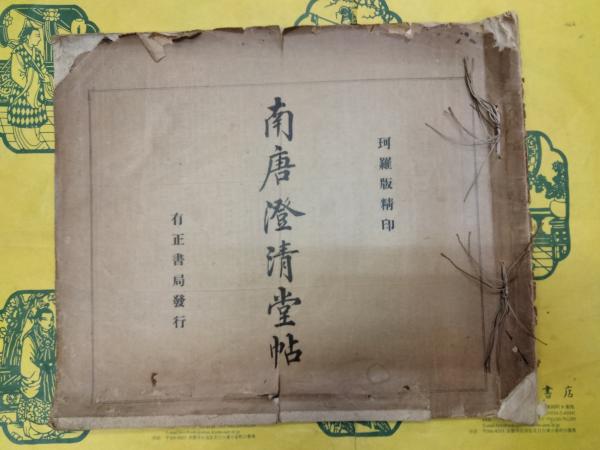 珂羅版精印
南唐澄清堂帖
有正書局發行
書店